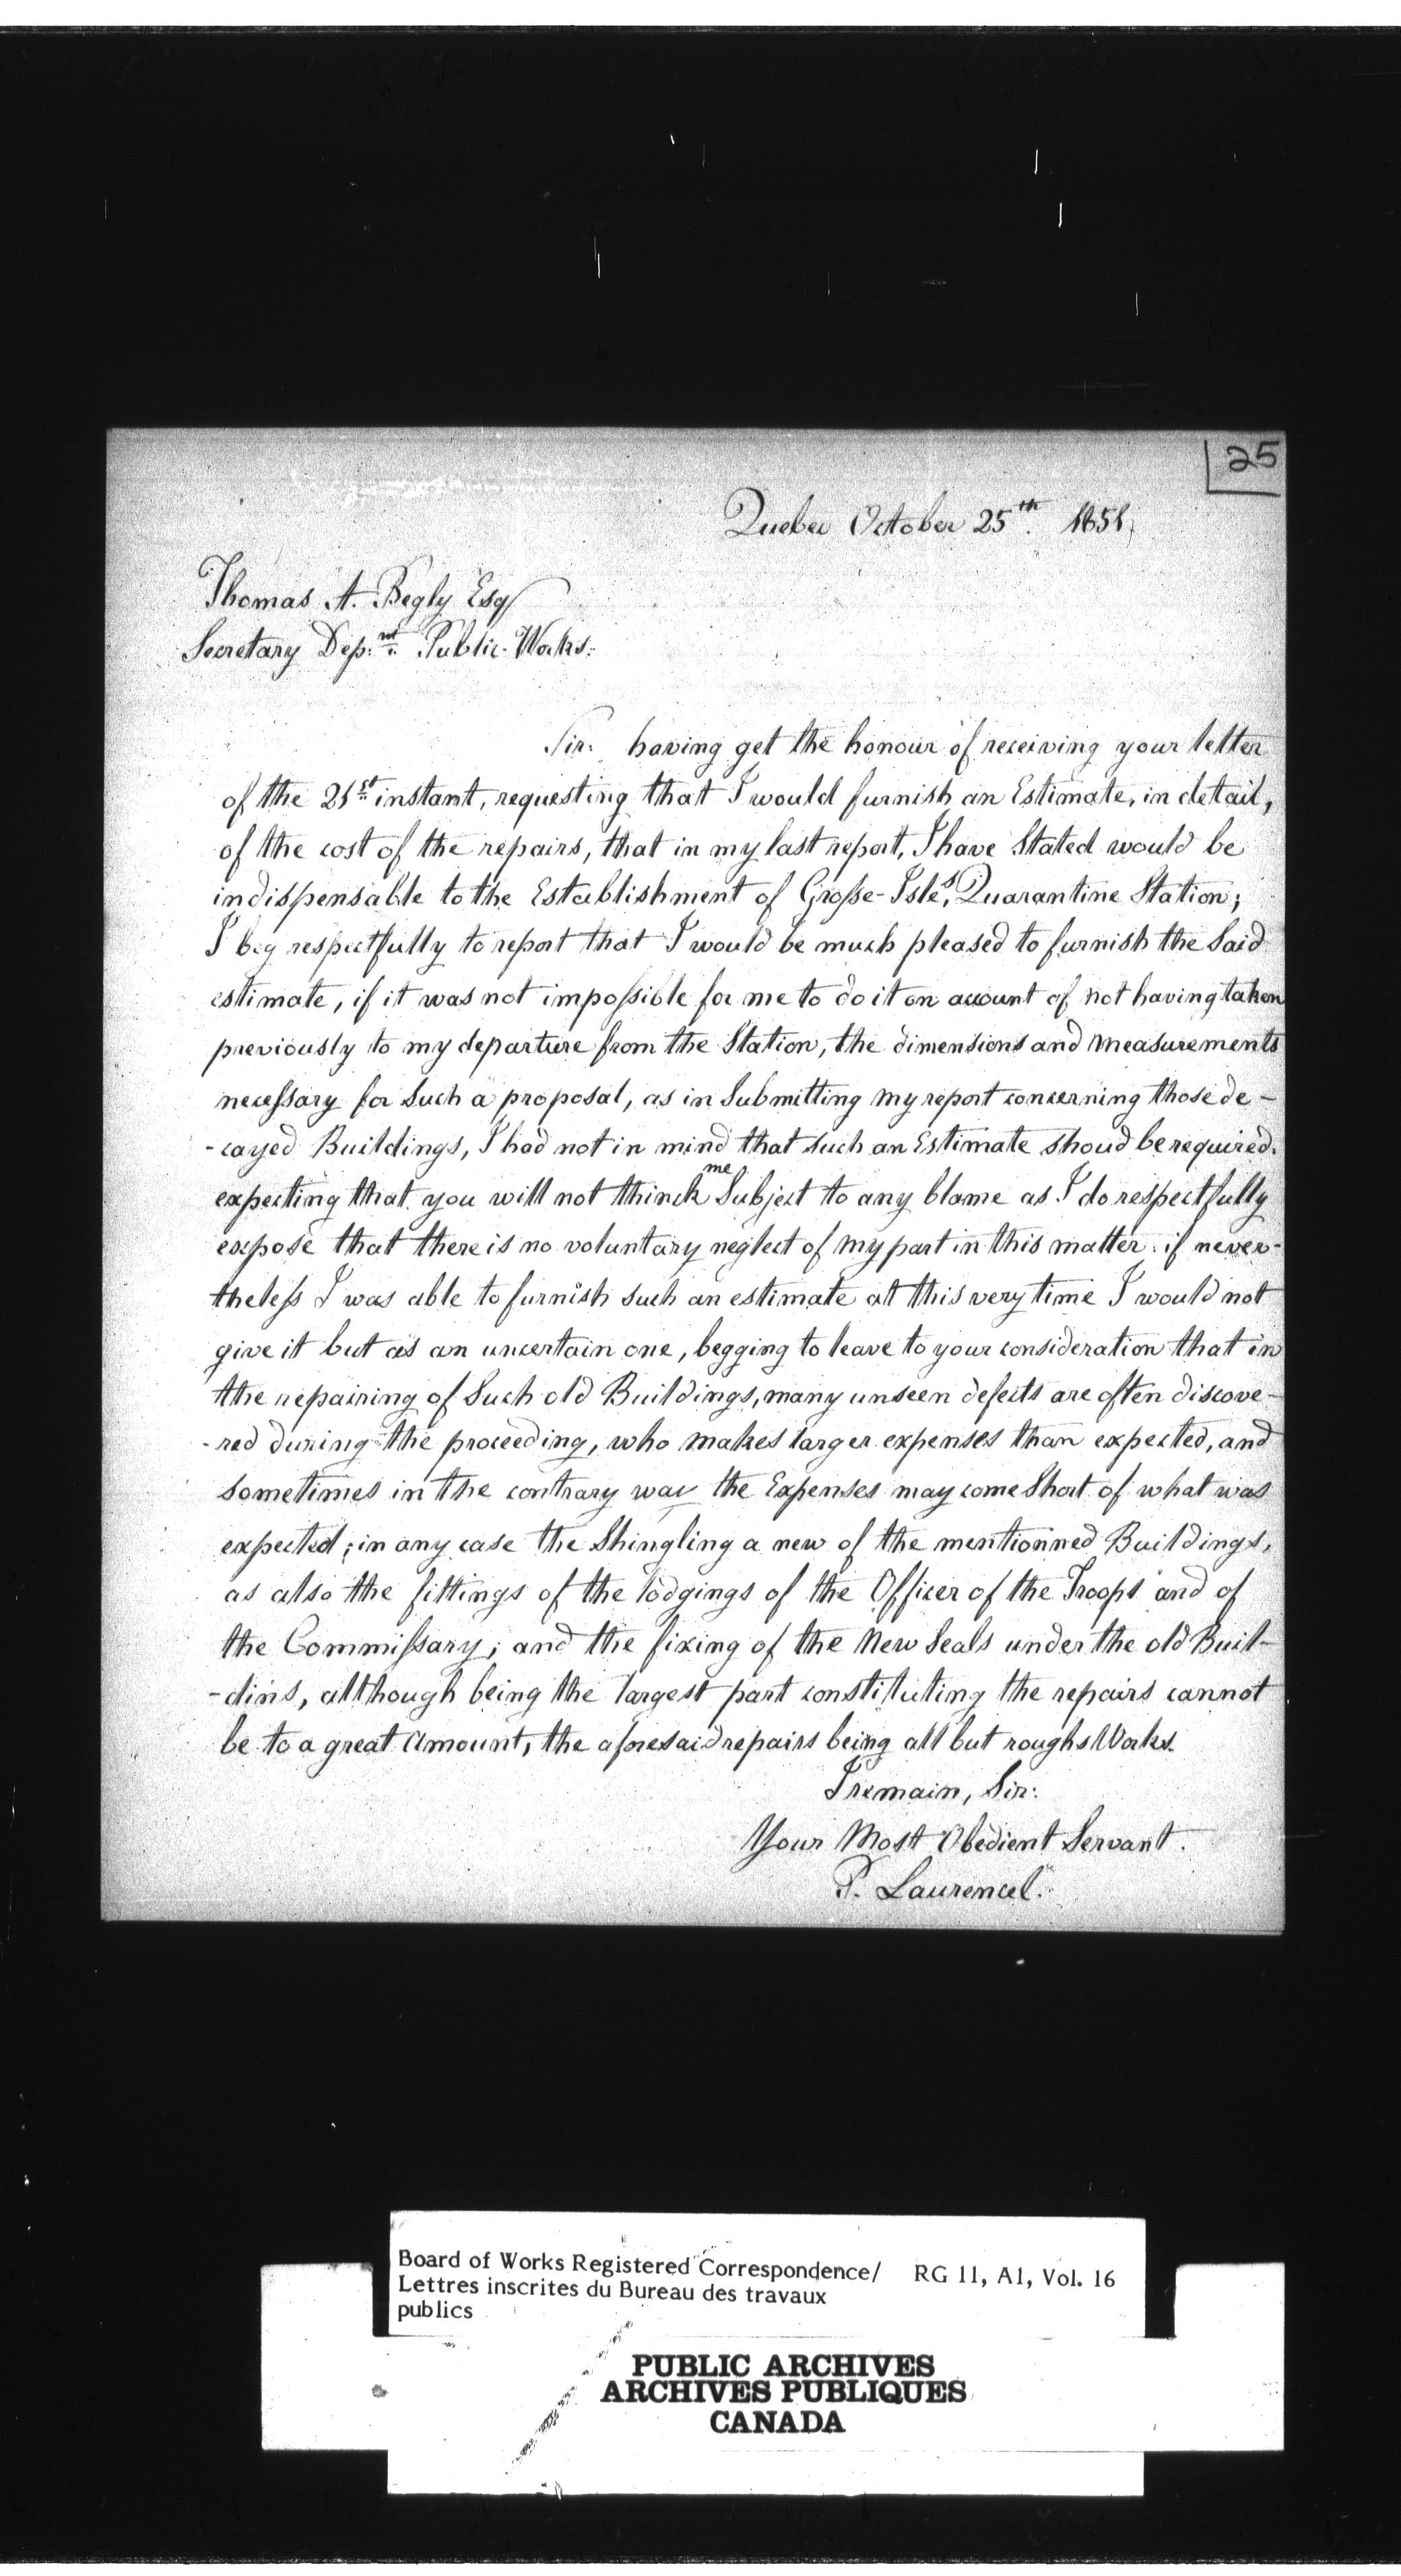 25
Quebec October 25th. 1851,
Thomas A. Begly Esq
Secretary Dep.nt. Public Works:
Sir: having get the honour of receiving your letter
of the 21st instant, requesting that I would furnish an Estimate, in detail,
of the cost of the repairs, that in my last report, I have Stated would be
indispensable to the Establishment of Grosse-Isle's, Quarantine Station;
I beg respectfully to report that I would be much pleased to furnish the Said
estimate, if it was not impossible for me to do it on account of not having taken
previously to my departure from the Station, the dimensions and measurements
necessary for Such a proposal, as in Submitting my report concerning those de-
-cayed Buildings, I had not in mind that such an Estimate shoud be required.
expecting that you will not thinck me Subject to any blame as I do respectfully
expose that there is no voluntary neglect of my part in this matter. if never-
theless I was able to furnish such an estimate at this very time I would not
give it but as an uncertain one, begging to leave to your consideration that in
the repairing of Such old Buildings, many unseen defects are often discove-
-red during the proceeding, who makes larger expenses than expected, and
sometimes in the contrary way the Expenses may come Short of what was
expected; in any case the Shingling a new of the mentionned Buildings,
as also the fittings of the lodgings of the Officer of the Troops and of
the Commissary; and the fixing of the New Seals under the old Buil-
-dins, although being the largest part constituting the repairs cannot
be to a great Amount, the aforesaid repairs being all but roughs Works.
I remain, Sir:
Your Most Obedient Servant.
P. Laurencel.
Board of Works Registered Correspondence/ RG 11, A1, Vol. 16
Lettres inscrites du Bureau des travaux
publics
PUBLIC ARCHIVES
ARCHIVES PUBLIQUES
CANADA